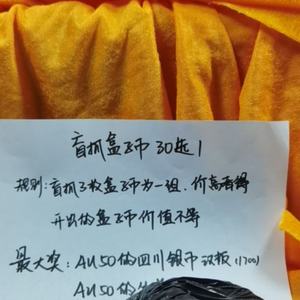 盲抓盒子币 30选1
规则:盲抓3枚盒子币为一组.价高者得
开出的盒子币价值不等
最大奖:AU50的四川银币汉版(1700)
AU50的